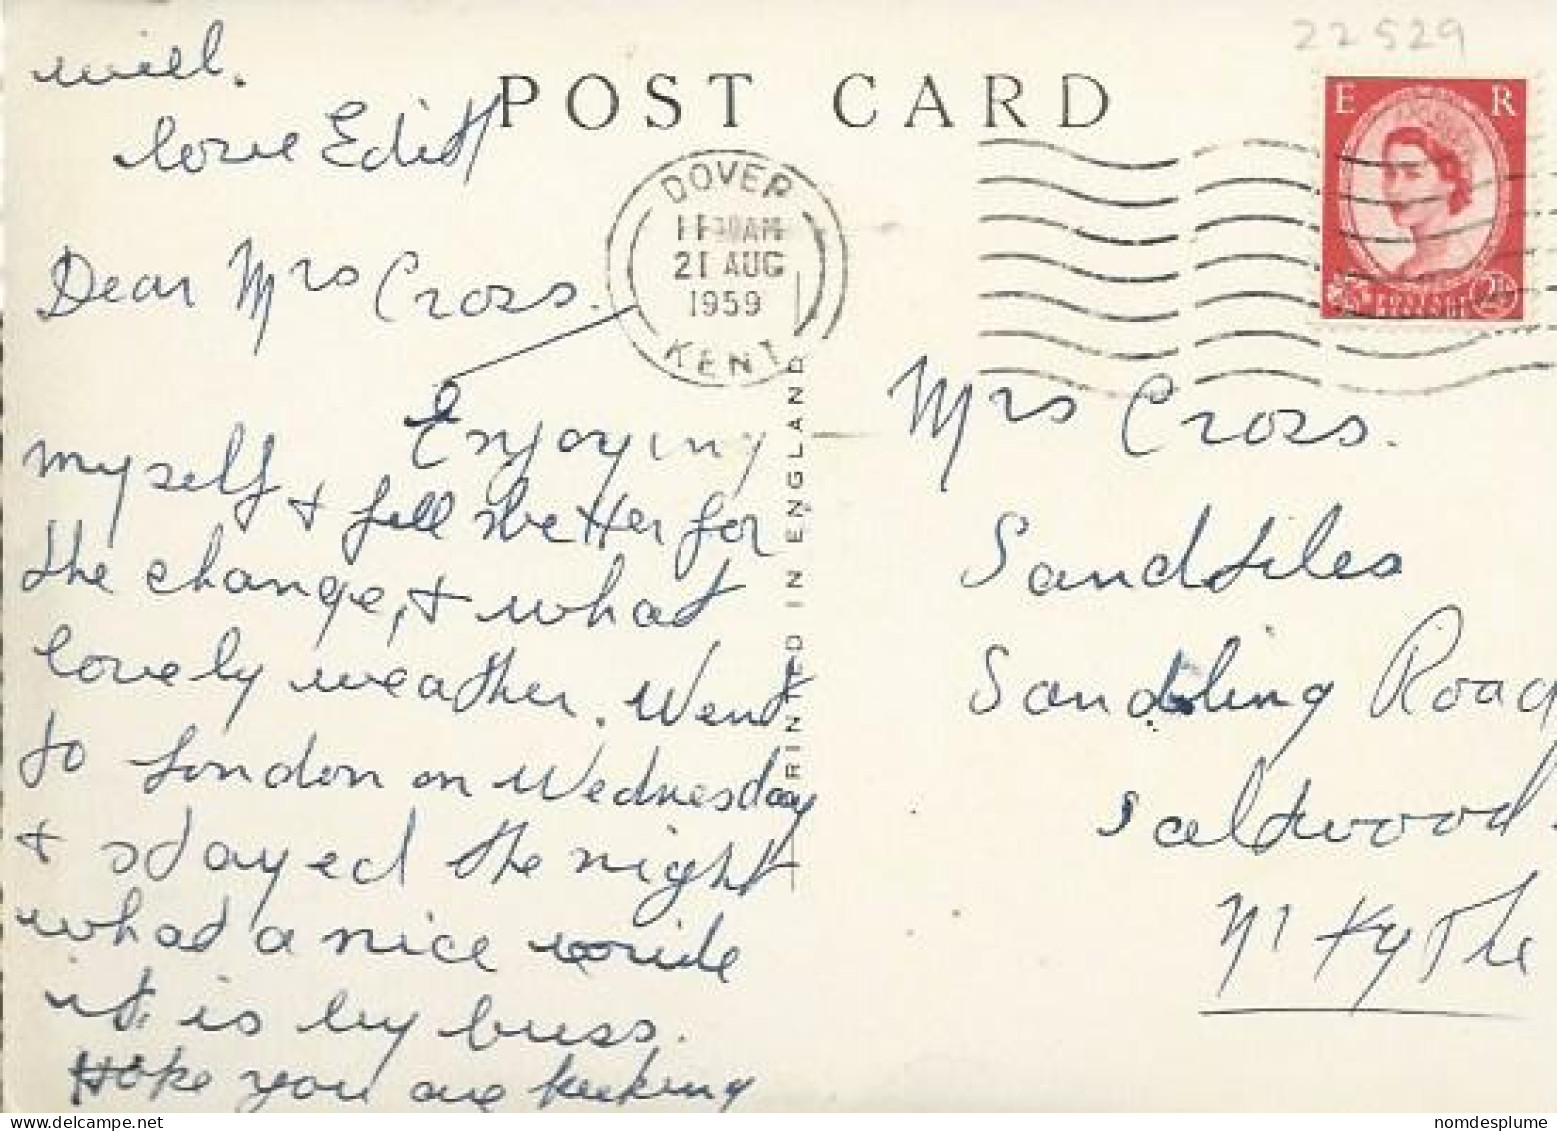 will.
love Edith
POST CARD
22529
E R
DOVER
AM
21 AUG
1959
KENT
Dear Mrs Cross.
Enjoying
myself & feel better for
the change, & what
lovely weather. Went
to London on Wednesday
& stayed the night
what a nice ride
it is by buss.
Hope you are keeking
PRINTED IN ENGLAND
Mrs Cross.
Sandtiles
Sandling Road
Saltwood.
Nr Hythe
nomdesplume